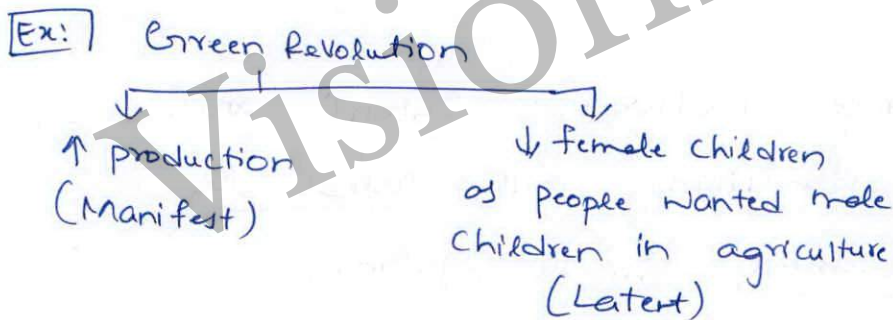 Ex:
Green Revolution
↑ production
(Manifest)
↓ female children
as people wanted male
children in agriculture
(Latent)
Vision